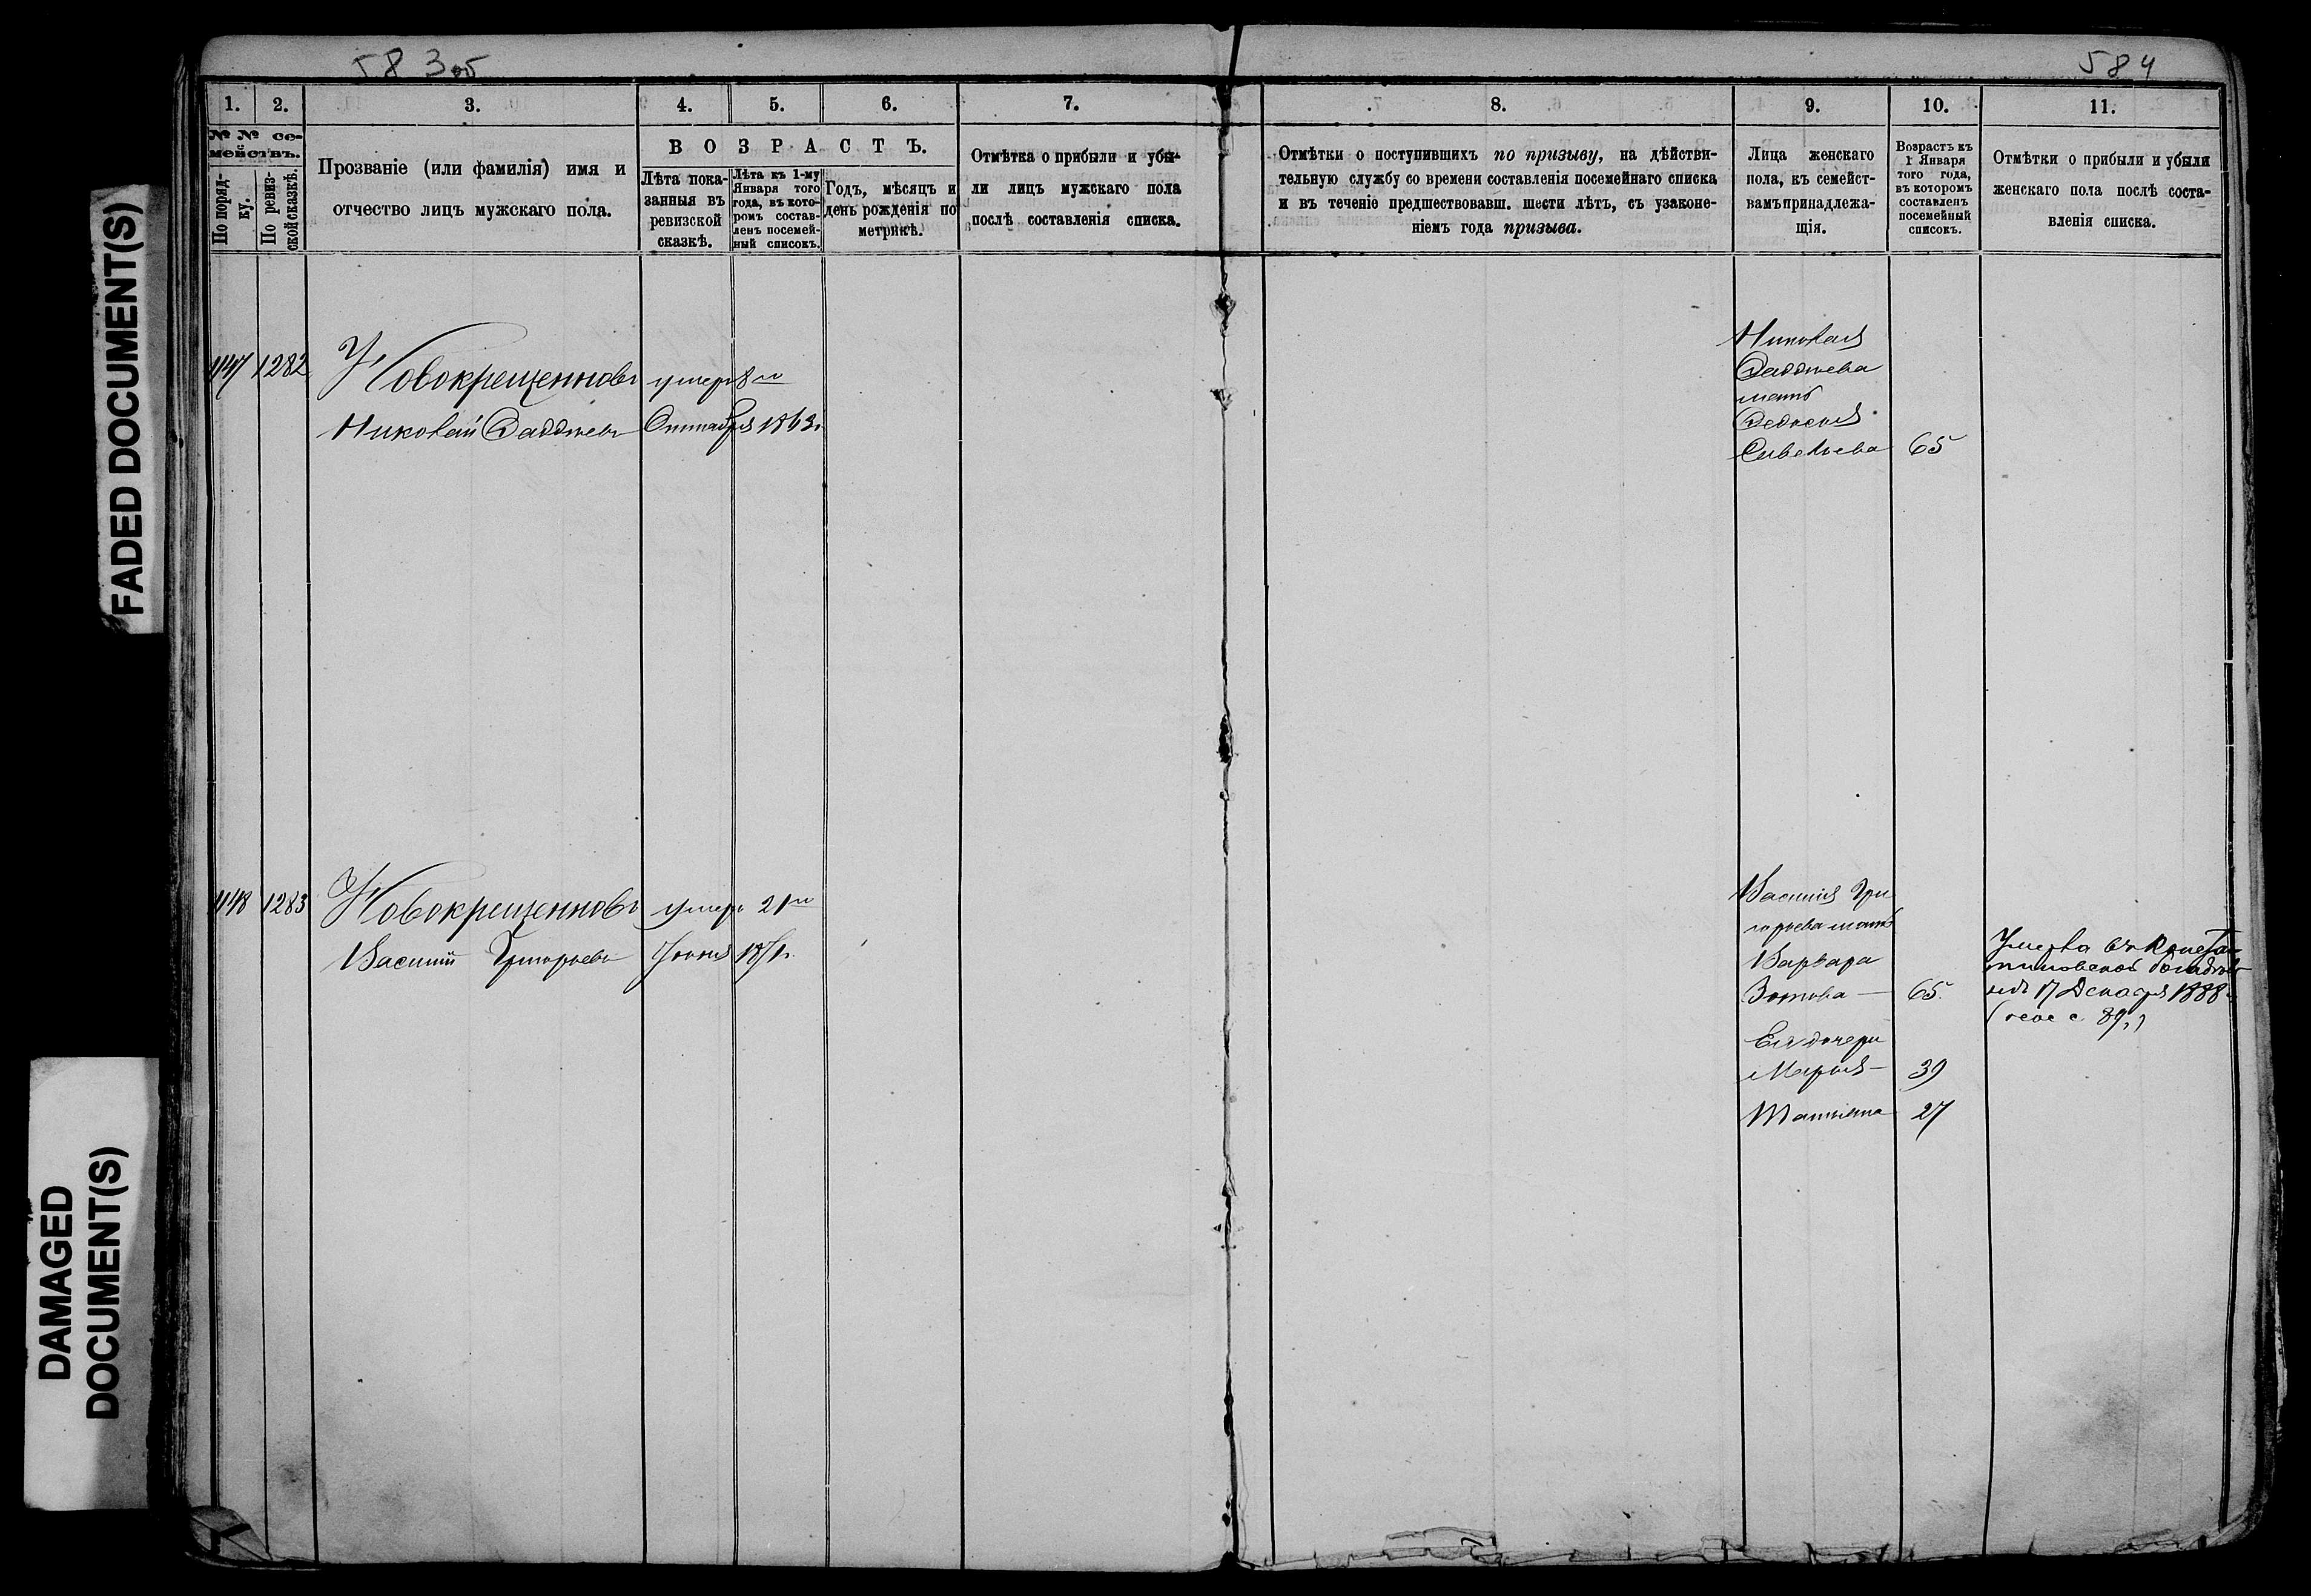 583об
584
1.
2.
3.
4.
5.
6.
7.
8.
9.
10.
11.
№ № се-
мействъ.
По поряд-
ку.
По ревиз-
ской сказкѣ.
Прозваніе (или фамилія) имя и
отчество лицъ мужскаго пола.
ВОЗРАСТЪ.
Лѣта пока-
занныя въ
ревизской
сказкѣ.
Лѣта къ 1-му
Января того
года, въ кото-
ромъ состав-
ленъ посемей-
ный списокъ.
Годъ, мѣсяцъ и
день рожденія по
метрикѣ.
Отмѣтка о прибыли и убы-
ли лицъ мужскаго пола
послѣ составленія списка.
Отмѣтки о поступившихъ по призыву, на дѣйстви-
тельную службу со времени составленія посемейнаго списка
и въ теченіе предшествовавш. шести лѣтъ, съ узаконе-
ніемъ года призыва.
Лица женскаго
пола, къ семейст-
вамъ принадлежа-
щія.
Возрастъ къ
1 Января
того года,
въ которомъ
составленъ
посемейный
списокъ.
Отмѣтки о прибыли и убыли
женскаго пола послѣ соста-
вленія списка.
1282
Новокрещенновъ
умеръ 8го
Николай Фаддѣевъ
Октября 1863г.
Николая
Фаддѣева
мать
Федосья
Савельева
65
1283
Новокрещенновъ
умеръ 21го
Василій Григорьевъ
Іюня 1871г.
Василія Гри
горьева мать
Варвара
Зотова —
65.
Ея дочери
Марья —
39
Татьяна
27
Умерла въ Конста
17 Декабря 1888
FADED DOCUMENT(S)
DAMAGED
DOCUMENT(S)